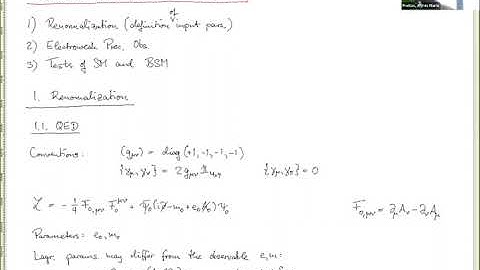 1) Renormalization (definition of input pars.)
2) Electroweak Prec. Obs.
3) Tests of SM and BSM
1. Renormalization
1.1. QED
Conventions: (g_μν) = diag (+1, -1, -1, -1)
{γ_μ, γ_ν} = 2g_μν 𝟙_4×4 {γ_μ, γ_5} = 0
ℒ = -1/4 F_0,μν F_0^μν + ψ̄_0 (i∂̸ - m_0 + e_0 A̸_0) ψ_0 F_0,μν = ∂_μ A_ν - ∂_ν A_μ
Parameters: e_0, m_0
Lagr. params may differ from the observable e, m: